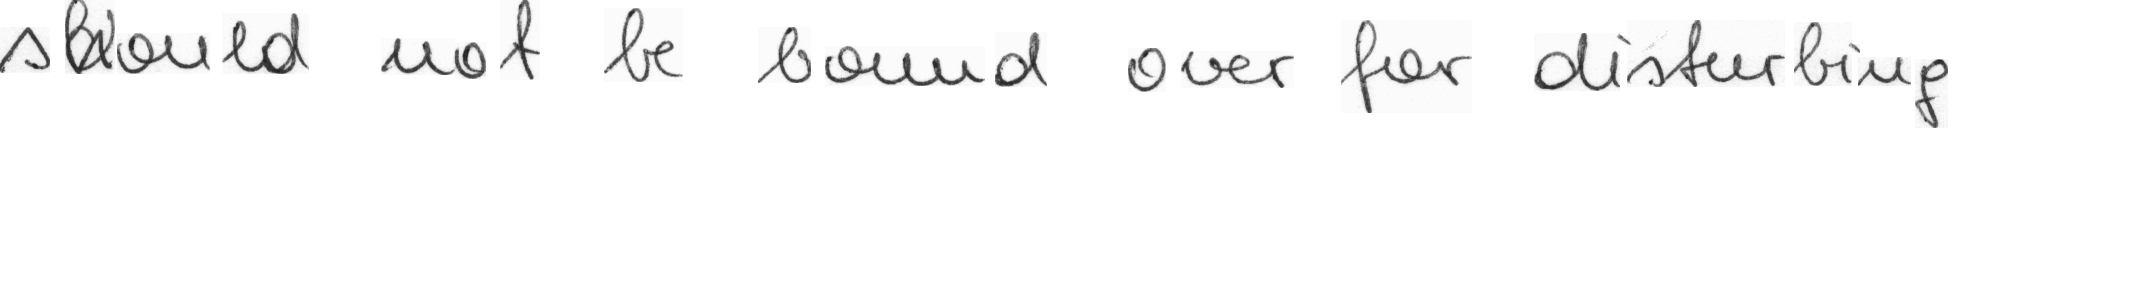 should not be bound over for disturbing